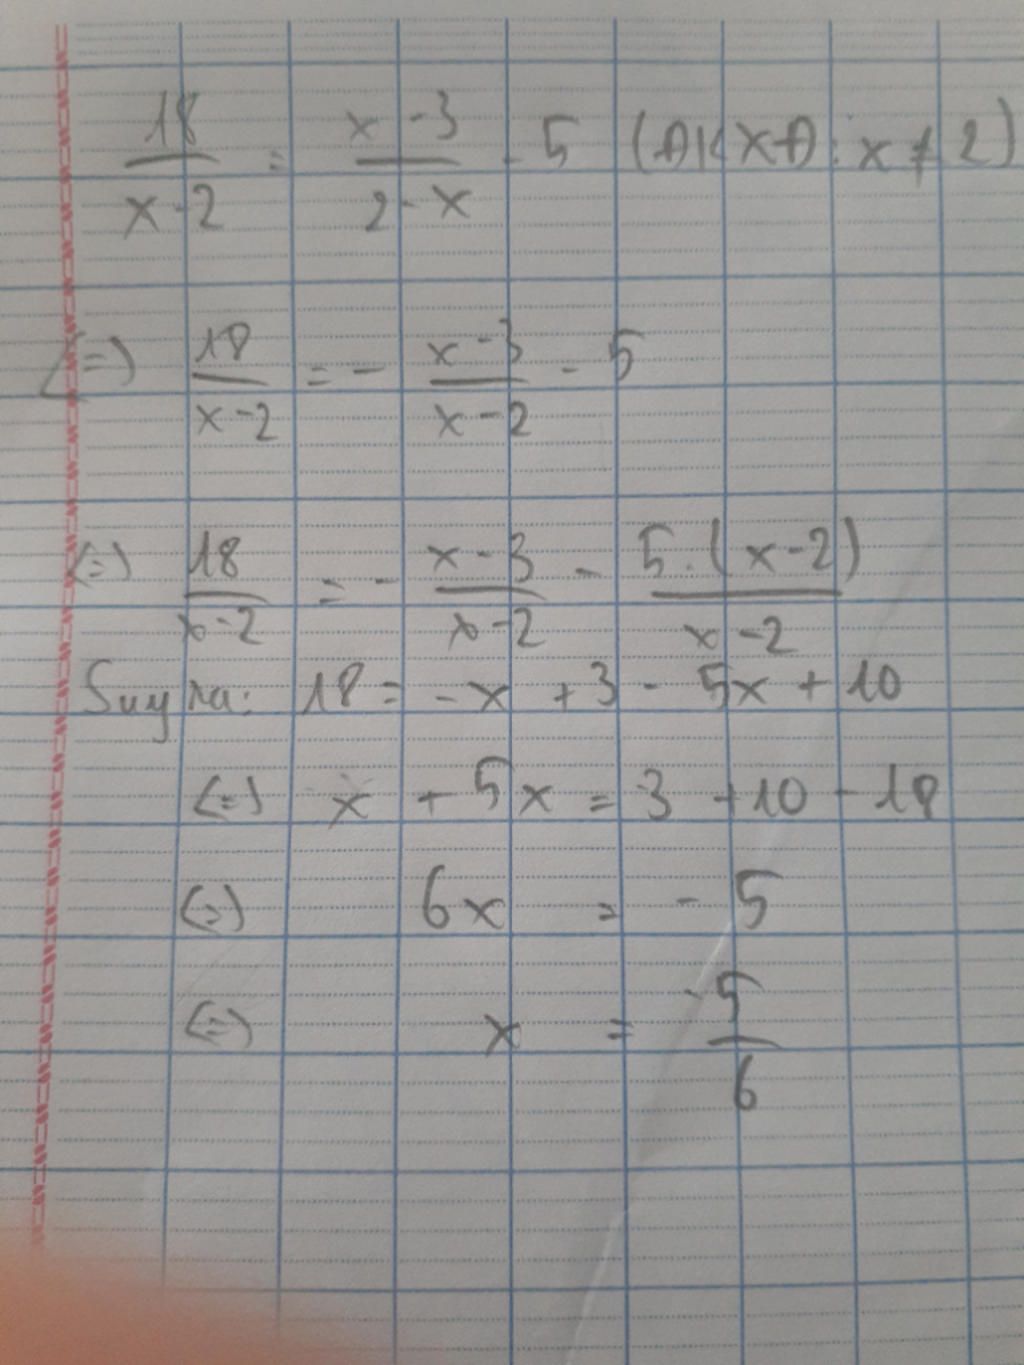 18/(x-2) = (x-3)/(2-x) - 5 (ĐKXĐ: x ≠ 2)
(=) 18/(x-2) = - (x-3)/(x-2) - 5
(=) 18/(x-2) = - (x-3)/(x-2) - 5.(x-2)/(x-2)
Suy ra: 18 = -x + 3 - 5x + 10
(=) x + 5x = 3 + 10 - 18
(=) 6x = -5
(=) x = -5/6